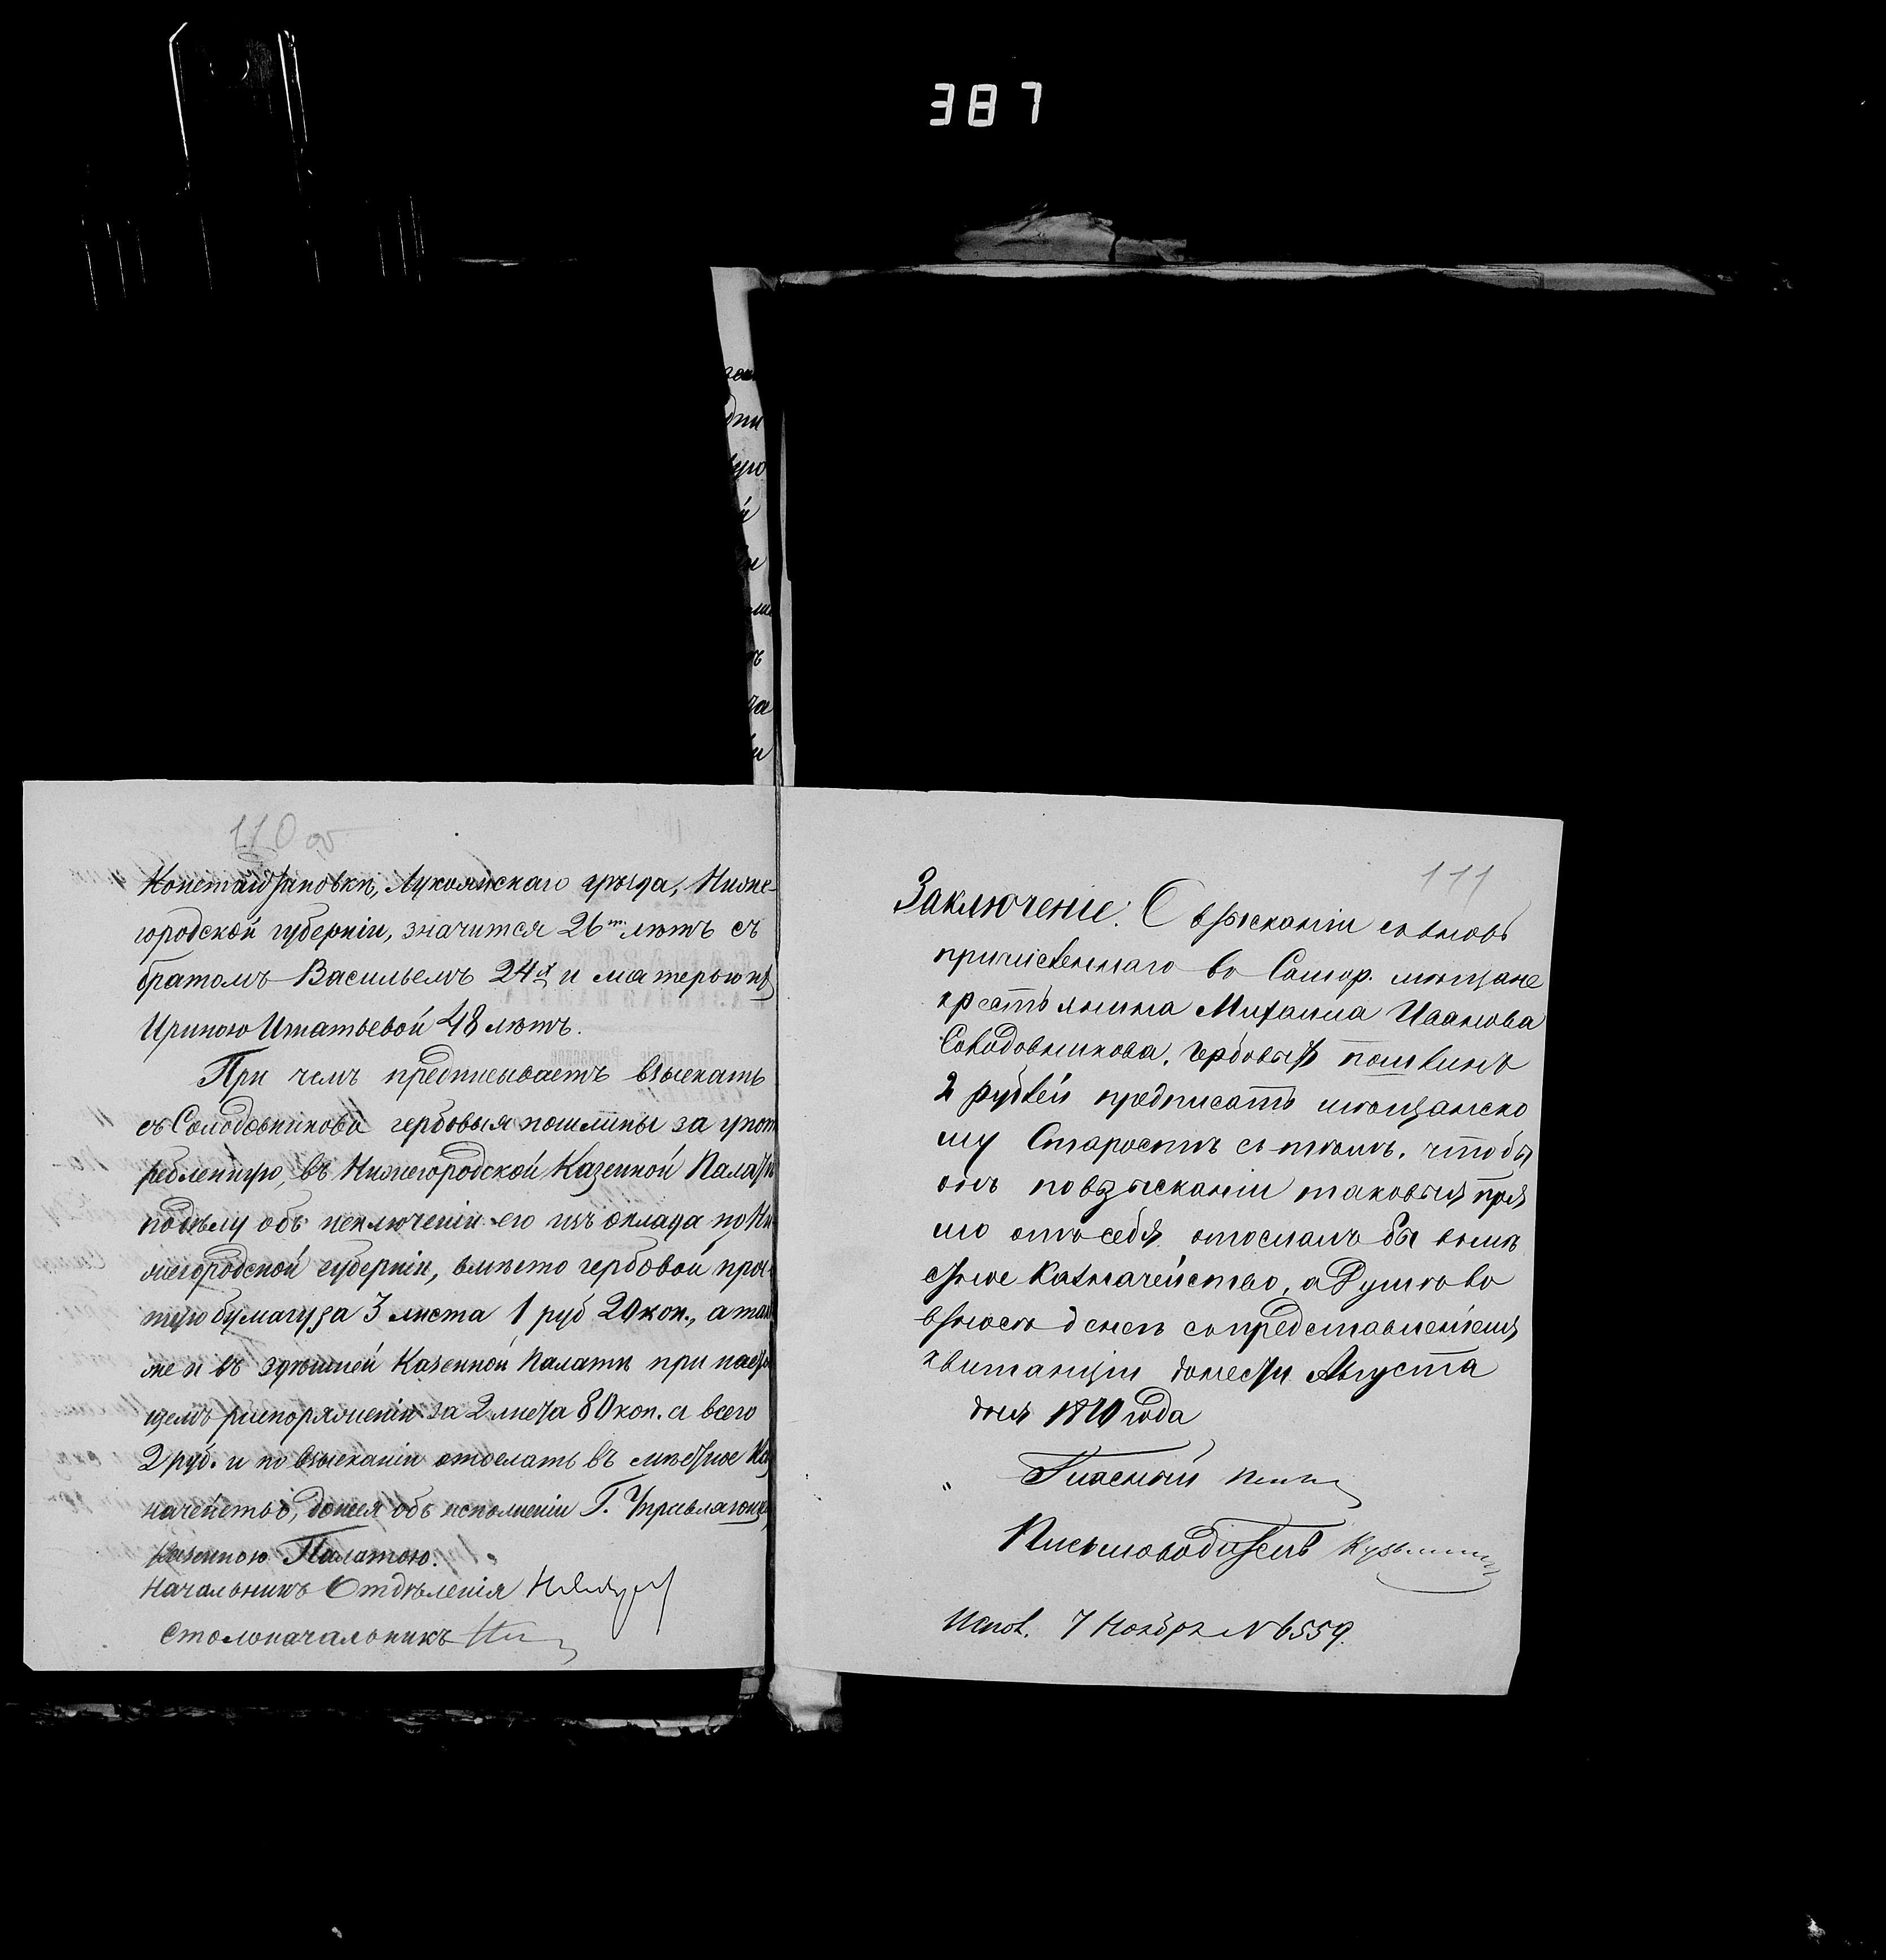 387
110 об
Константиновки, Лукояновскаго уѣзда, Ниже-
городской губерніи, значится 26 лѣтъ съ
братомъ Васильемъ 24х и матерью ихъ
Ириною Игнатьевой 48 лѣтъ.
При чемъ предписываетъ взыскать
съ Солодовникова гербовыя пошлины за упот
ребленную въ Нижегородской Казенной Палатѣ
по дѣлу объ исключеніи его изъ оклада по Ни
жегородской губерніи, вмѣсто гербовой прос
тую бумагу за 3 листа 1 руб 20 коп., а так
же и въ здѣшней Казенной Палатѣ при настоя
щемъ распоряженіи за 2 листа 80 коп. а всего
2 руб. и по взысканіи отослать въ мѣстное Каз
начейство, донеся объ исполненіи Г. Управляющему
Казенною Палатою.
Начальникъ Отдѣленія
Столоначальникъ
111
Заключеніе: О взысканіи со вновь
причисленнаго въ Самар. мѣщане
крестьянина Михаила Иванова
Солодовникова, гербовыхъ пошлинъ
2 рублей предписать мѣщанско
му Старостѣ съ тѣмъ, чтобы
онъ по взысканіи таковыя пря
мо отъ себя отослалъ бы въ мѣ
стное Казначейство, а Думѣ о
взносѣ денегъ съ представленіемъ
квитанціи донести Августа
дня 1870 года
Гласный
Письмоводитель Кузьминъ
Испол. 7 Ноября № 6559.